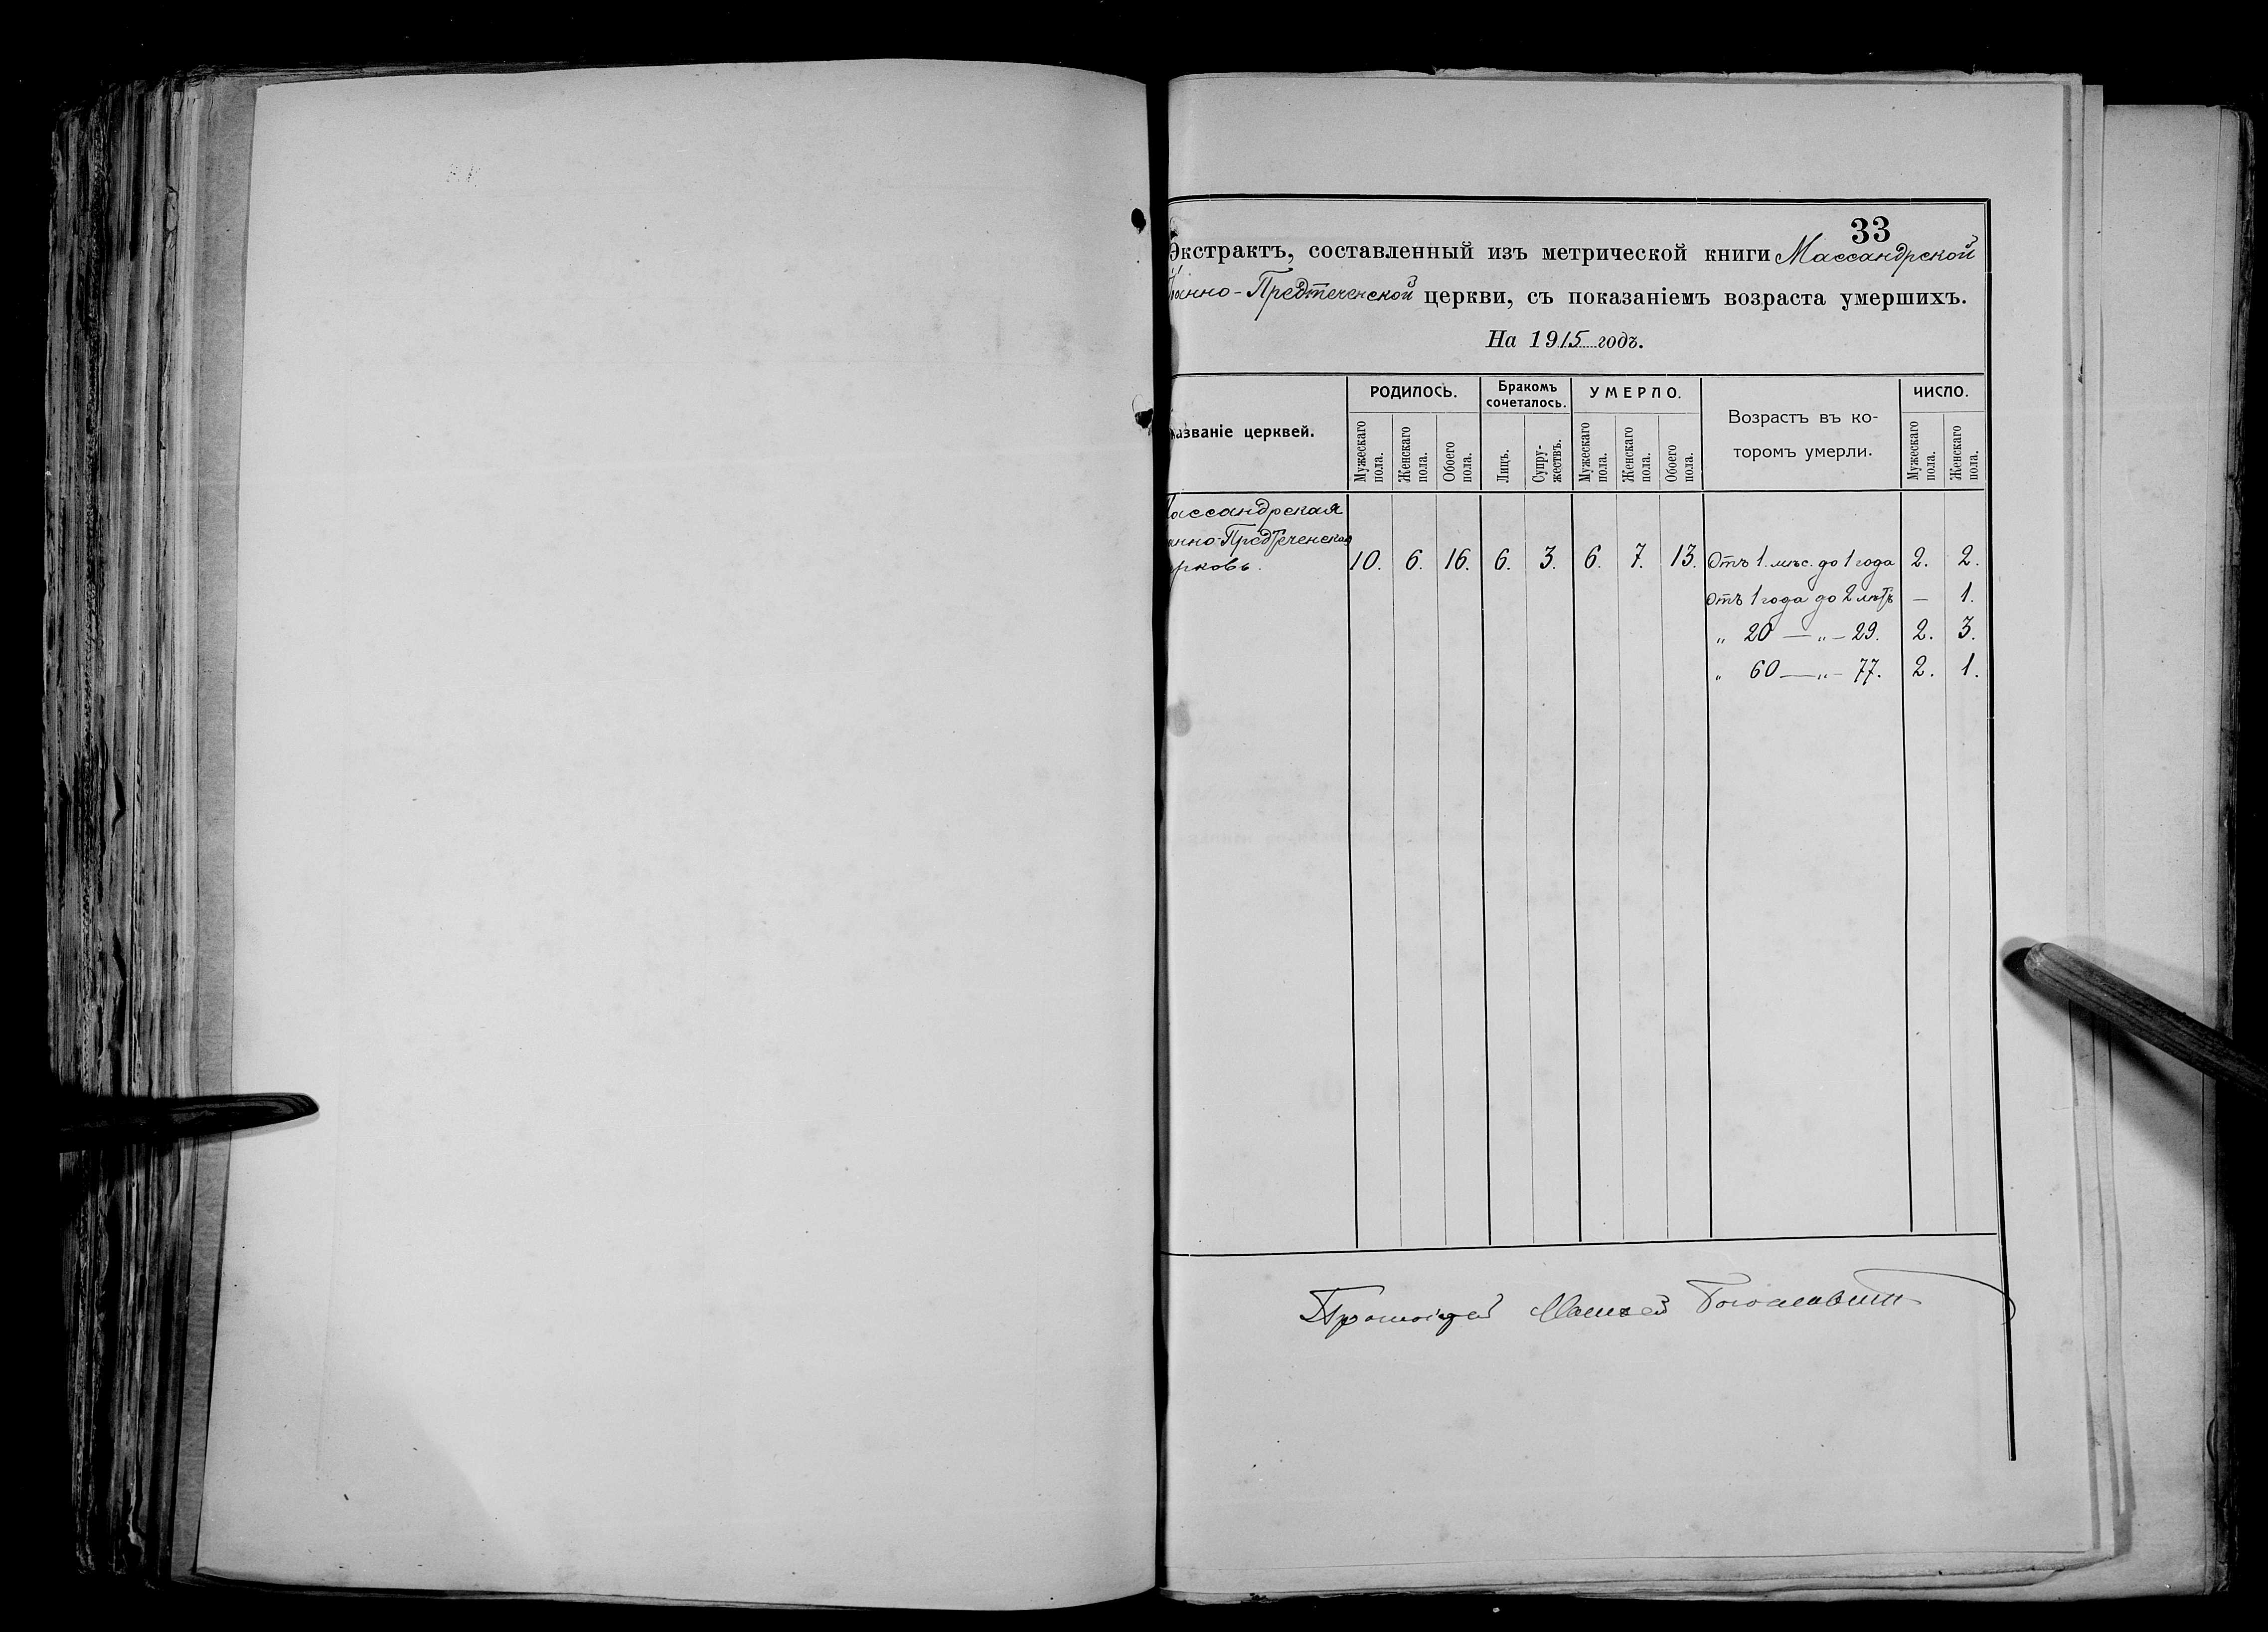 33
Экстрактъ, составленный изъ метрической книги Массандрской
Іоанно-Предтеченской церкви, съ показаніемъ возраста умершихъ.
На 1915 годъ.
Названіе церквей.
РОДИЛОСЬ.
Мужескаго пола.
Женскаго пола.
Обоего пола.
Бракомъ сочеталось.
Лицъ.
Супружествъ.
УМЕРЛО.
Мужескаго пола.
Женскаго пола.
Обоего пола.
Возрастъ въ ко-
торомъ умерли.
ЧИСЛО.
Мужескаго пола.
Женскаго пола.
Массандрская
Іоанно-Предтеченская
церковь. 10. 6. 16. 6. 3. 6. 7. 13. Отъ 1. мѣс. до 1 года 2. 2.
Отъ 1 года до 2 лѣтъ — 1.
„ 20 — „ — 29. 2. 3.
„ 60 — „ — 77. 2. 1.
Протоіерей